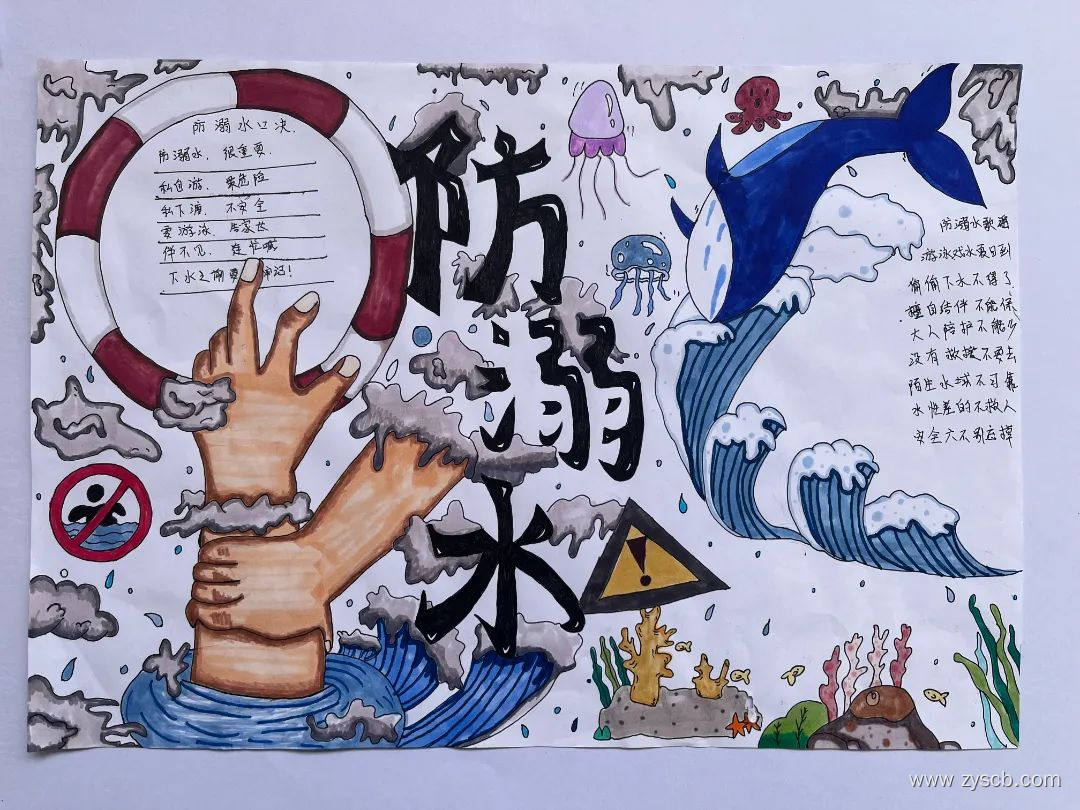 防溺水口决.
防溺水，很重要.
私自游，最危险
私下源，不安全
要游泳，
伴不见，
下水之前要牢记!
防
溺
水
防溺水歌谣
游泳戏水夏日到
偷偷下水不得了
擅自结伴不能保
大人陪护不能少
没有救援不要去
陌生水域不可靠
水性差的不救人
安全六不别忘掉
www.zyscb.com